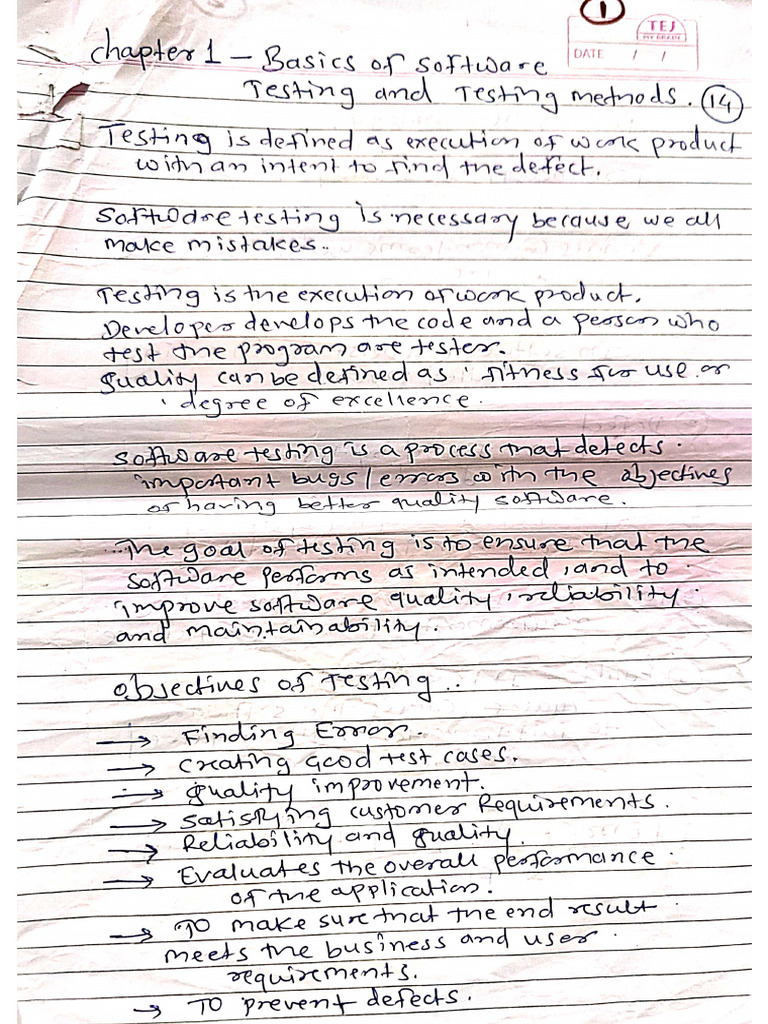 1
TEJ
MY GRADE
DATE / /
Chapter 1 – Basics of software
Testing and Testing methods. 14
Testing is defined as execution of work product
with an intent to find the defect.
Software testing is necessary because we all
make mistakes..
Testing is the execution of work product.
Developer develops the code and a person who
test the program are tester.
Quality can be defined as, fitness for use or
degree of excellence.
Software testing is a process that detects
important bugs/errors with the objectives
of having better quality software.
The goal of testing is to ensure that the
software performs as intended, and to
improve software quality, reliability
and maintainability.
Objectives of Testing..
→ Finding Error.
→ Creating good test cases.
→ Quality improvement.
→ Satisfying customer Requirements.
→ Reliability and quality.
→ Evaluates the overall performance
of the application.
→ To make sure that the end result
meets the business and user
requirements.
→ To prevent defects.